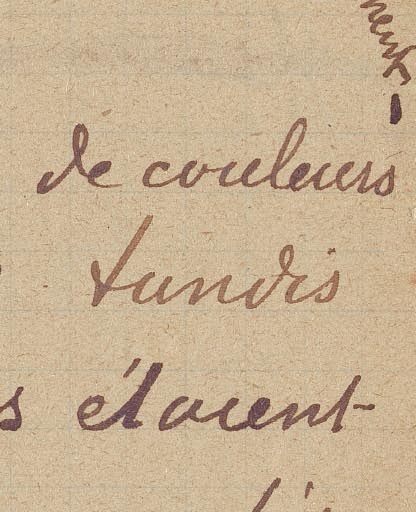 de couleurs
tandis
s étaient